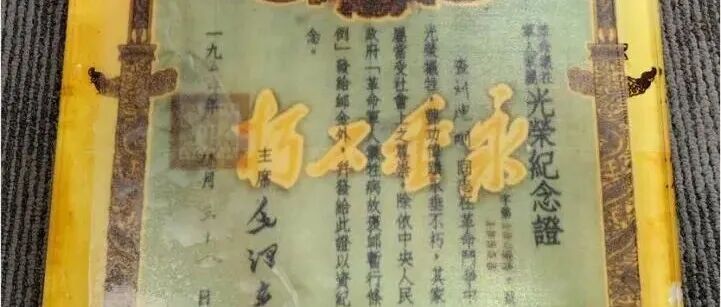 革命犧牲
軍人家屬
光榮紀念證
字第
查 同志在革命鬥爭中
光榮犧牲,豐功偉績永垂不朽,其家
屬當受社會上之尊崇。除依中央人民
政府「革命軍人犧牲病故褒卹暫行條
例」發給卹金外,并發給此證以資紀
念。
永垂不朽
主席 毛澤
一九 年八月三十 日